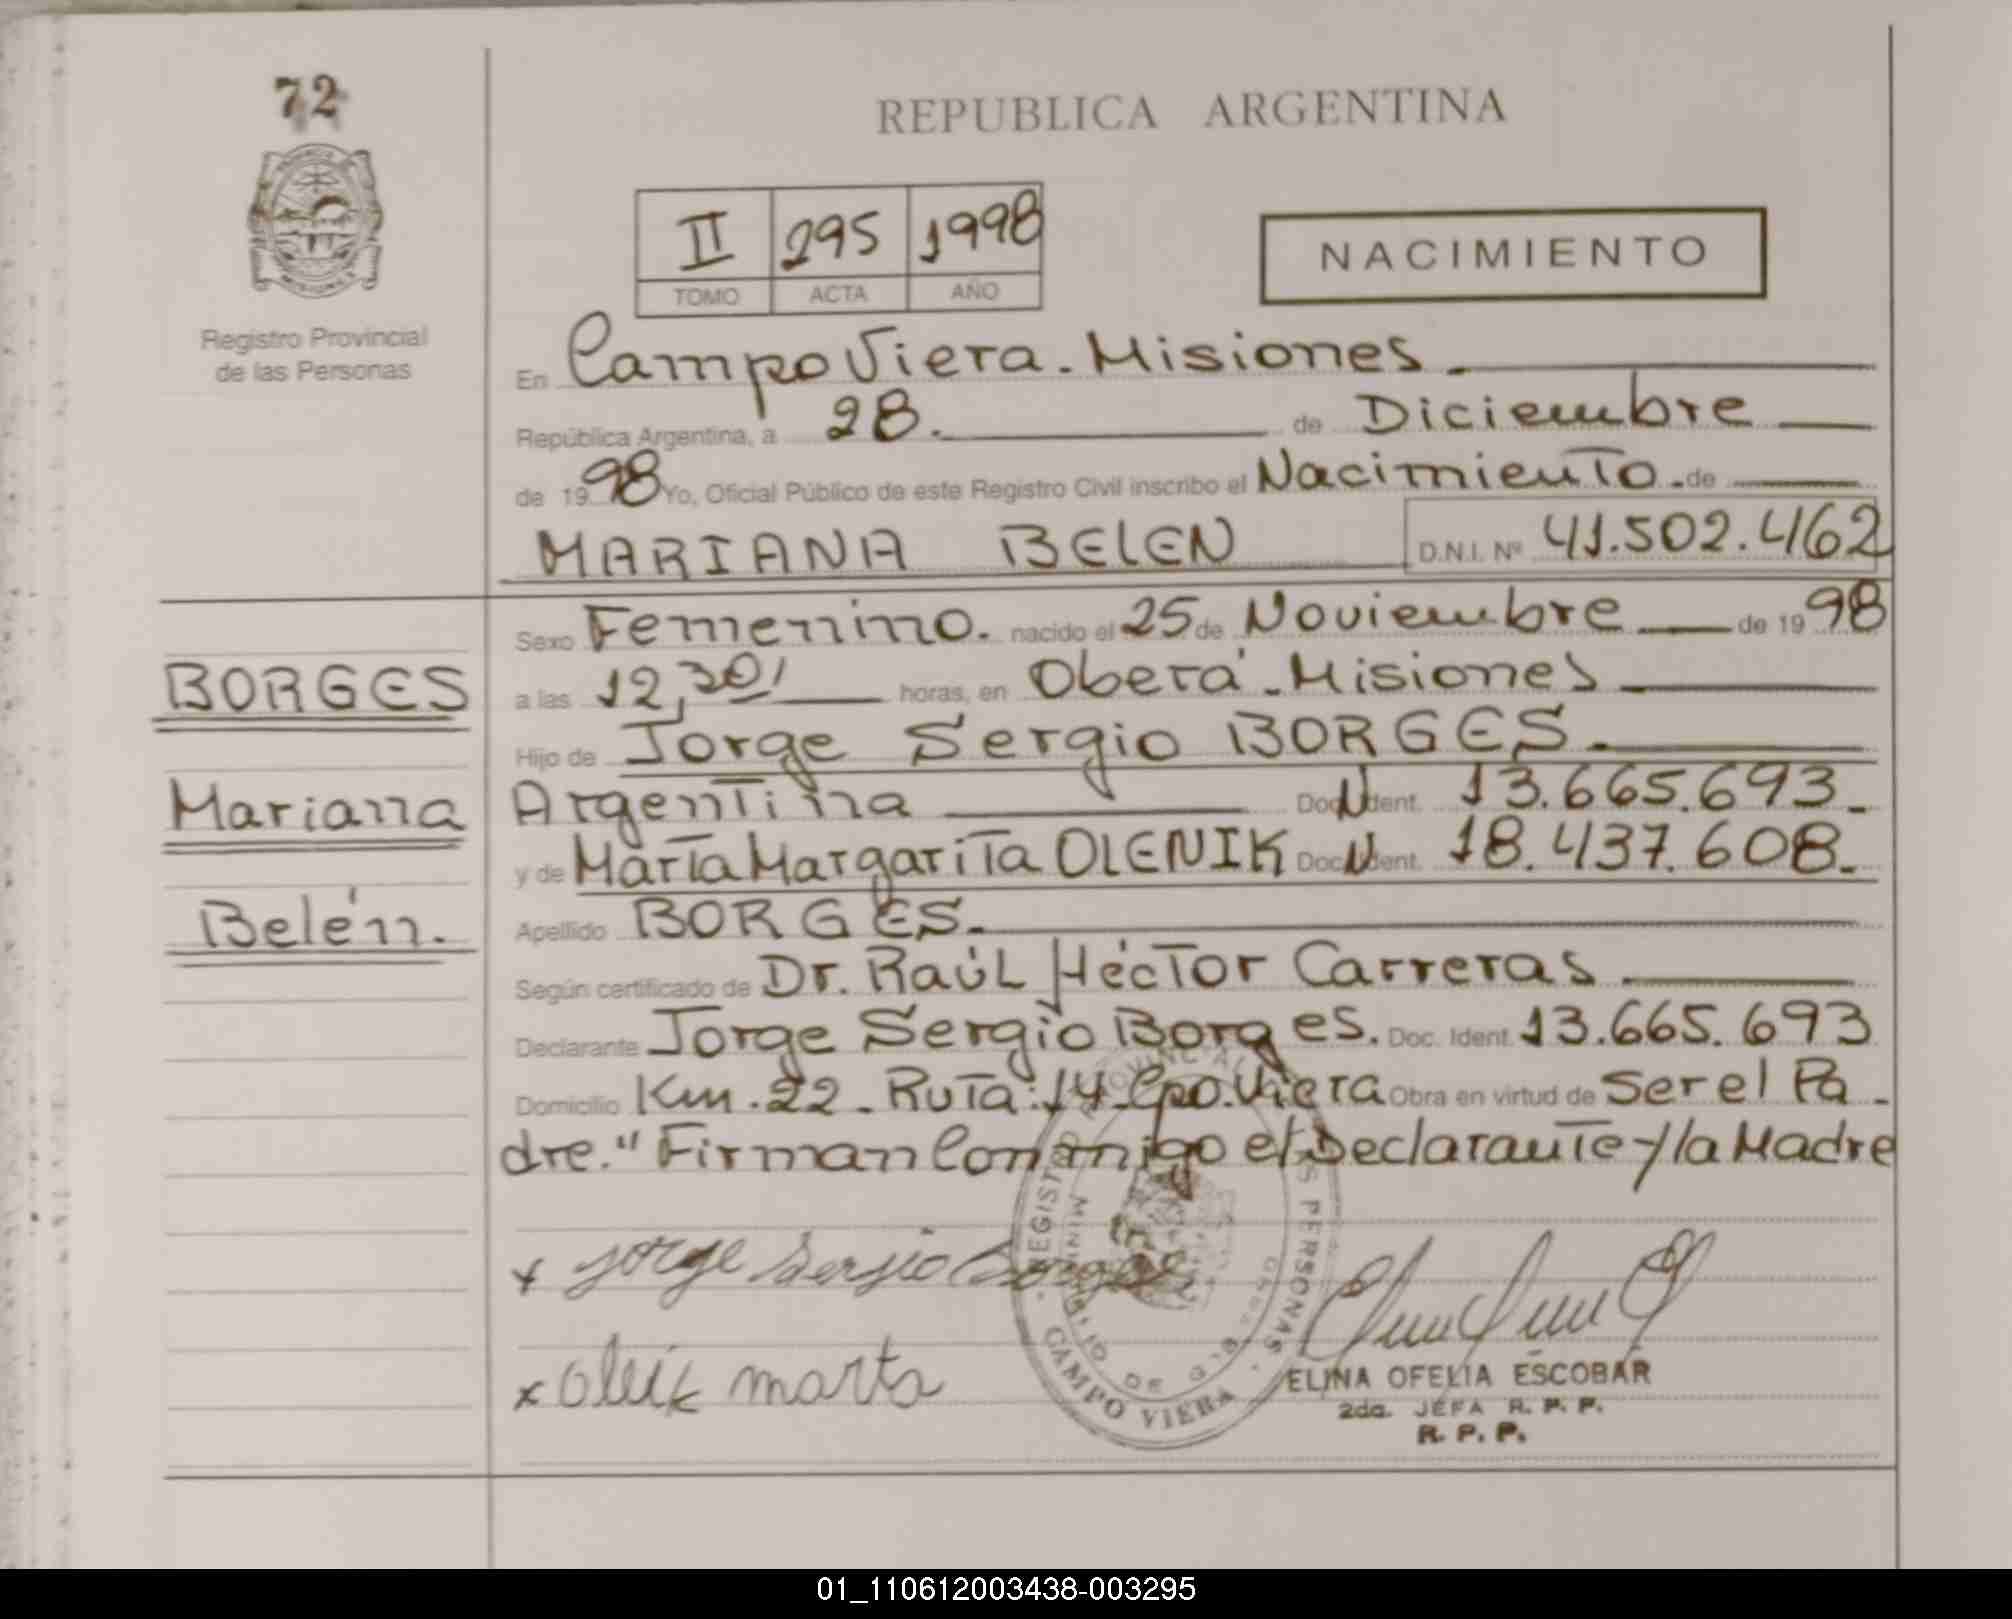 72
REPUBLICA ARGENTINA
II 295 1998
TOMO ACTA AÑO
NACIMIENTO
Registro Provincial
de las Personas
En Campo Viera - Misiones.
República Argentina, a 28. de Diciembre
de 1998 Yo, Oficial Público de este Registro Civil inscribo el Nacimiento. de
MARIANA BELEN D.N.I. Nº 41.502.462
Sexo Femenino. nacido el 25 de Noviembre de 1998
BORGES
a las 12,30' horas, en Oberá - Misiones
Hijo de Jorge Sergio BORGES.
Mariana
Argentina Doc. Ident. 13.665.693.
y de Marta Margarita OLENIK Doc. Ident. 18.437.608.
Belén.
Apellido BORGES.
Según certificado de Dr. Raúl Héctor Carreras
Declarante Jorge Sergio Borges. Doc. Ident. 13.665.693
Domicilio Km. 22 - Ruta: 14 - Cpo. Viera Obra en virtud de Ser el Pa-
dre." Firman Conmigo el Declarante y la Madre
x Jorge Sergio Borges
x Oleik marta
REGISTRO PROVINCIAL PERSONAS
CAMPO VIERA
ELINA OFELIA ESCOBAR
2da. JEFA R. P. P.
R. P. P.
01_110612003438-003295